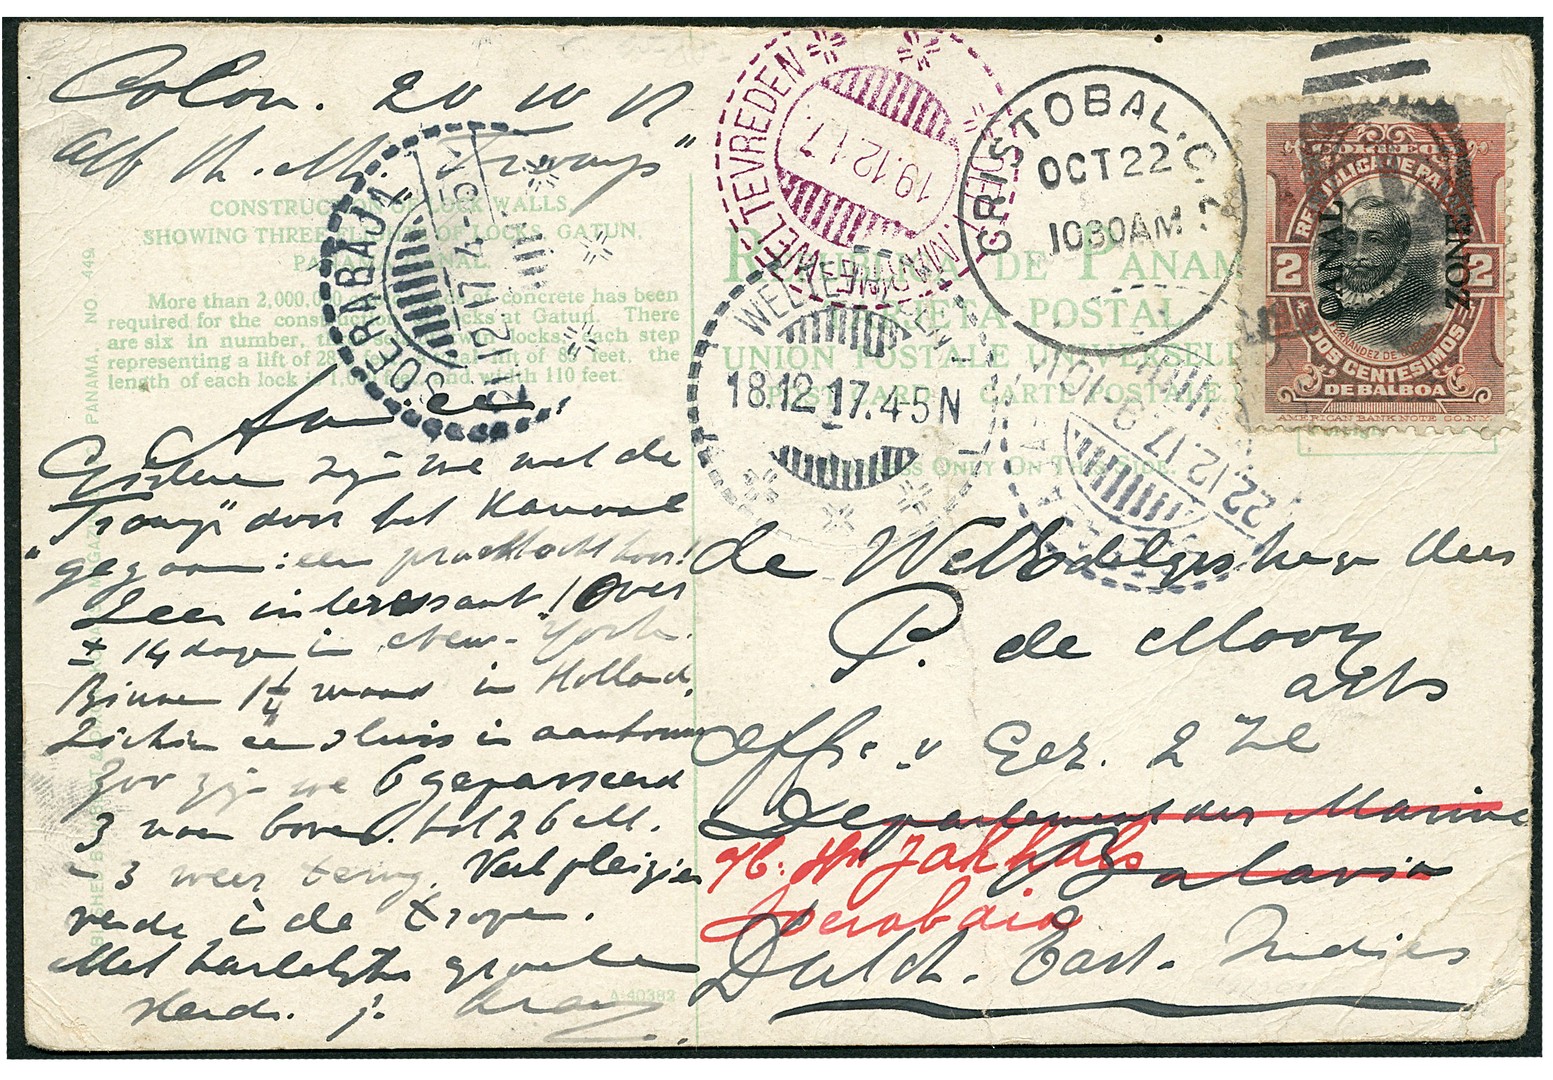 Colon. 20 10 17
a/b Hr. Ms. "Tromp"
CONSTRUCTION OF LOCK WALLS,
SHOWING THREE FLIGHTS OF LOCKS, GATUN,
PANAMA CANAL.
More than 2,000,000 yards of concrete has been
required for the construction locks at Gatun. There
are six in number, locks, each step
representing a lift of 28 feet, lift of 85 feet, the
length of each lock is 1,000 feet, and width 110 feet.
Gisteren zijn we met de
"Tromp" door het Kanaal
gegaan: een prachttocht hoor!
Zeer interessant! Over
± 14 dagen in New-York.
Binnen 1 1/4 maand in Holland.
Zichier een sluis in aanbouw
Zoo zijn we 6 gepasseerd
3 naar boven tot 26 M.
3 weer terug. Veel pleizier
verder in de tropen.
Met hartelijke groeten
A-40383
NO. 449
PANAMA,
REPUBLICA DE PANAMA
TARJETA POSTAL
UNION POSTALE UNIVERSELLE
POST CARD CARTE POSTALE.
ADDRESS ONLY ON THIS SIDE.
WELTEVREDEN
19.12.17.
CRISTOBAL. C. Z.
OCT 22
1030 AM
WELTEVREDEN
18.12.17.4-5N
SOERABAJA
21.12.17.4-5
22.12.17.9-10
CORREOS
REPUBLICA DE PANAMA
CANAL ZONE
2 2
FERNANDEZ DE CORDOBA
DOS CENTESIMOS
DE BALBOA
AMERICAN BANK NOTE CO. N.Y.
de WelEdelgeb. Heer
P. de Mooy
arts
Off. v. Gez. 2e Kl
Departement der Marine
Batavia
Hr. Ms Jakhals
Soerabaia
Dutch. East. Indies